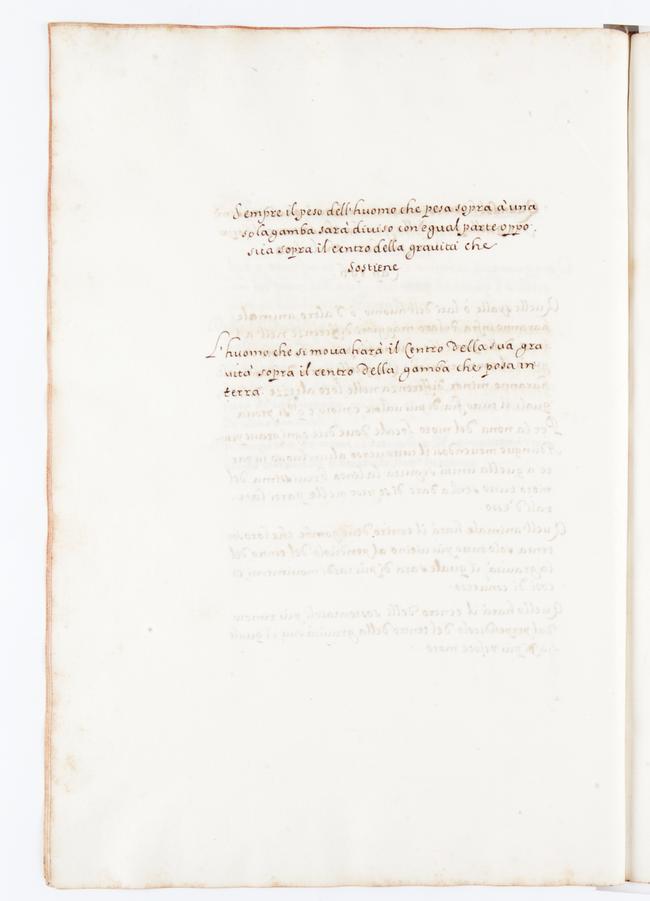 Sempre il peso dell'huomo che pesa sopra à una
sola gamba sarà diviso con equal parte oppo,
sita sopra il centro della gravità che
sostiene
L'huomo che si mova harà il Centro della sua gra
vità sopra il centro della gamba che posa in
terra